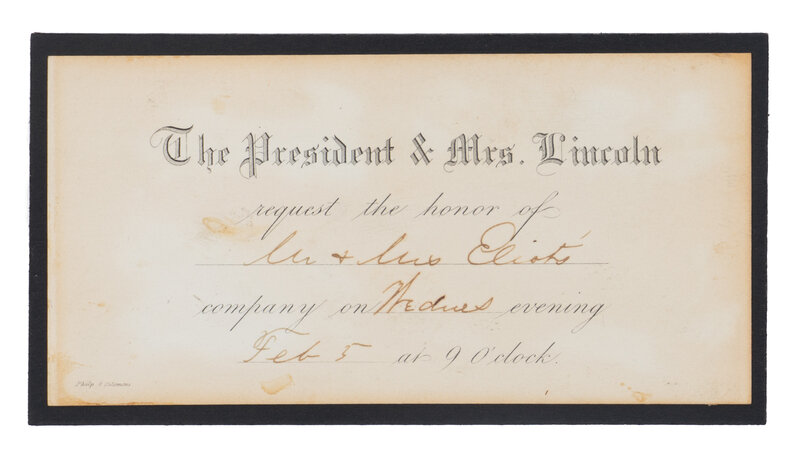 The President & Mrs. Lincoln
request the honor of
Mr + Mrs Eliot's
company on Wednes evening
Feb 5 at 9 O'clock.
Philp & Solomons